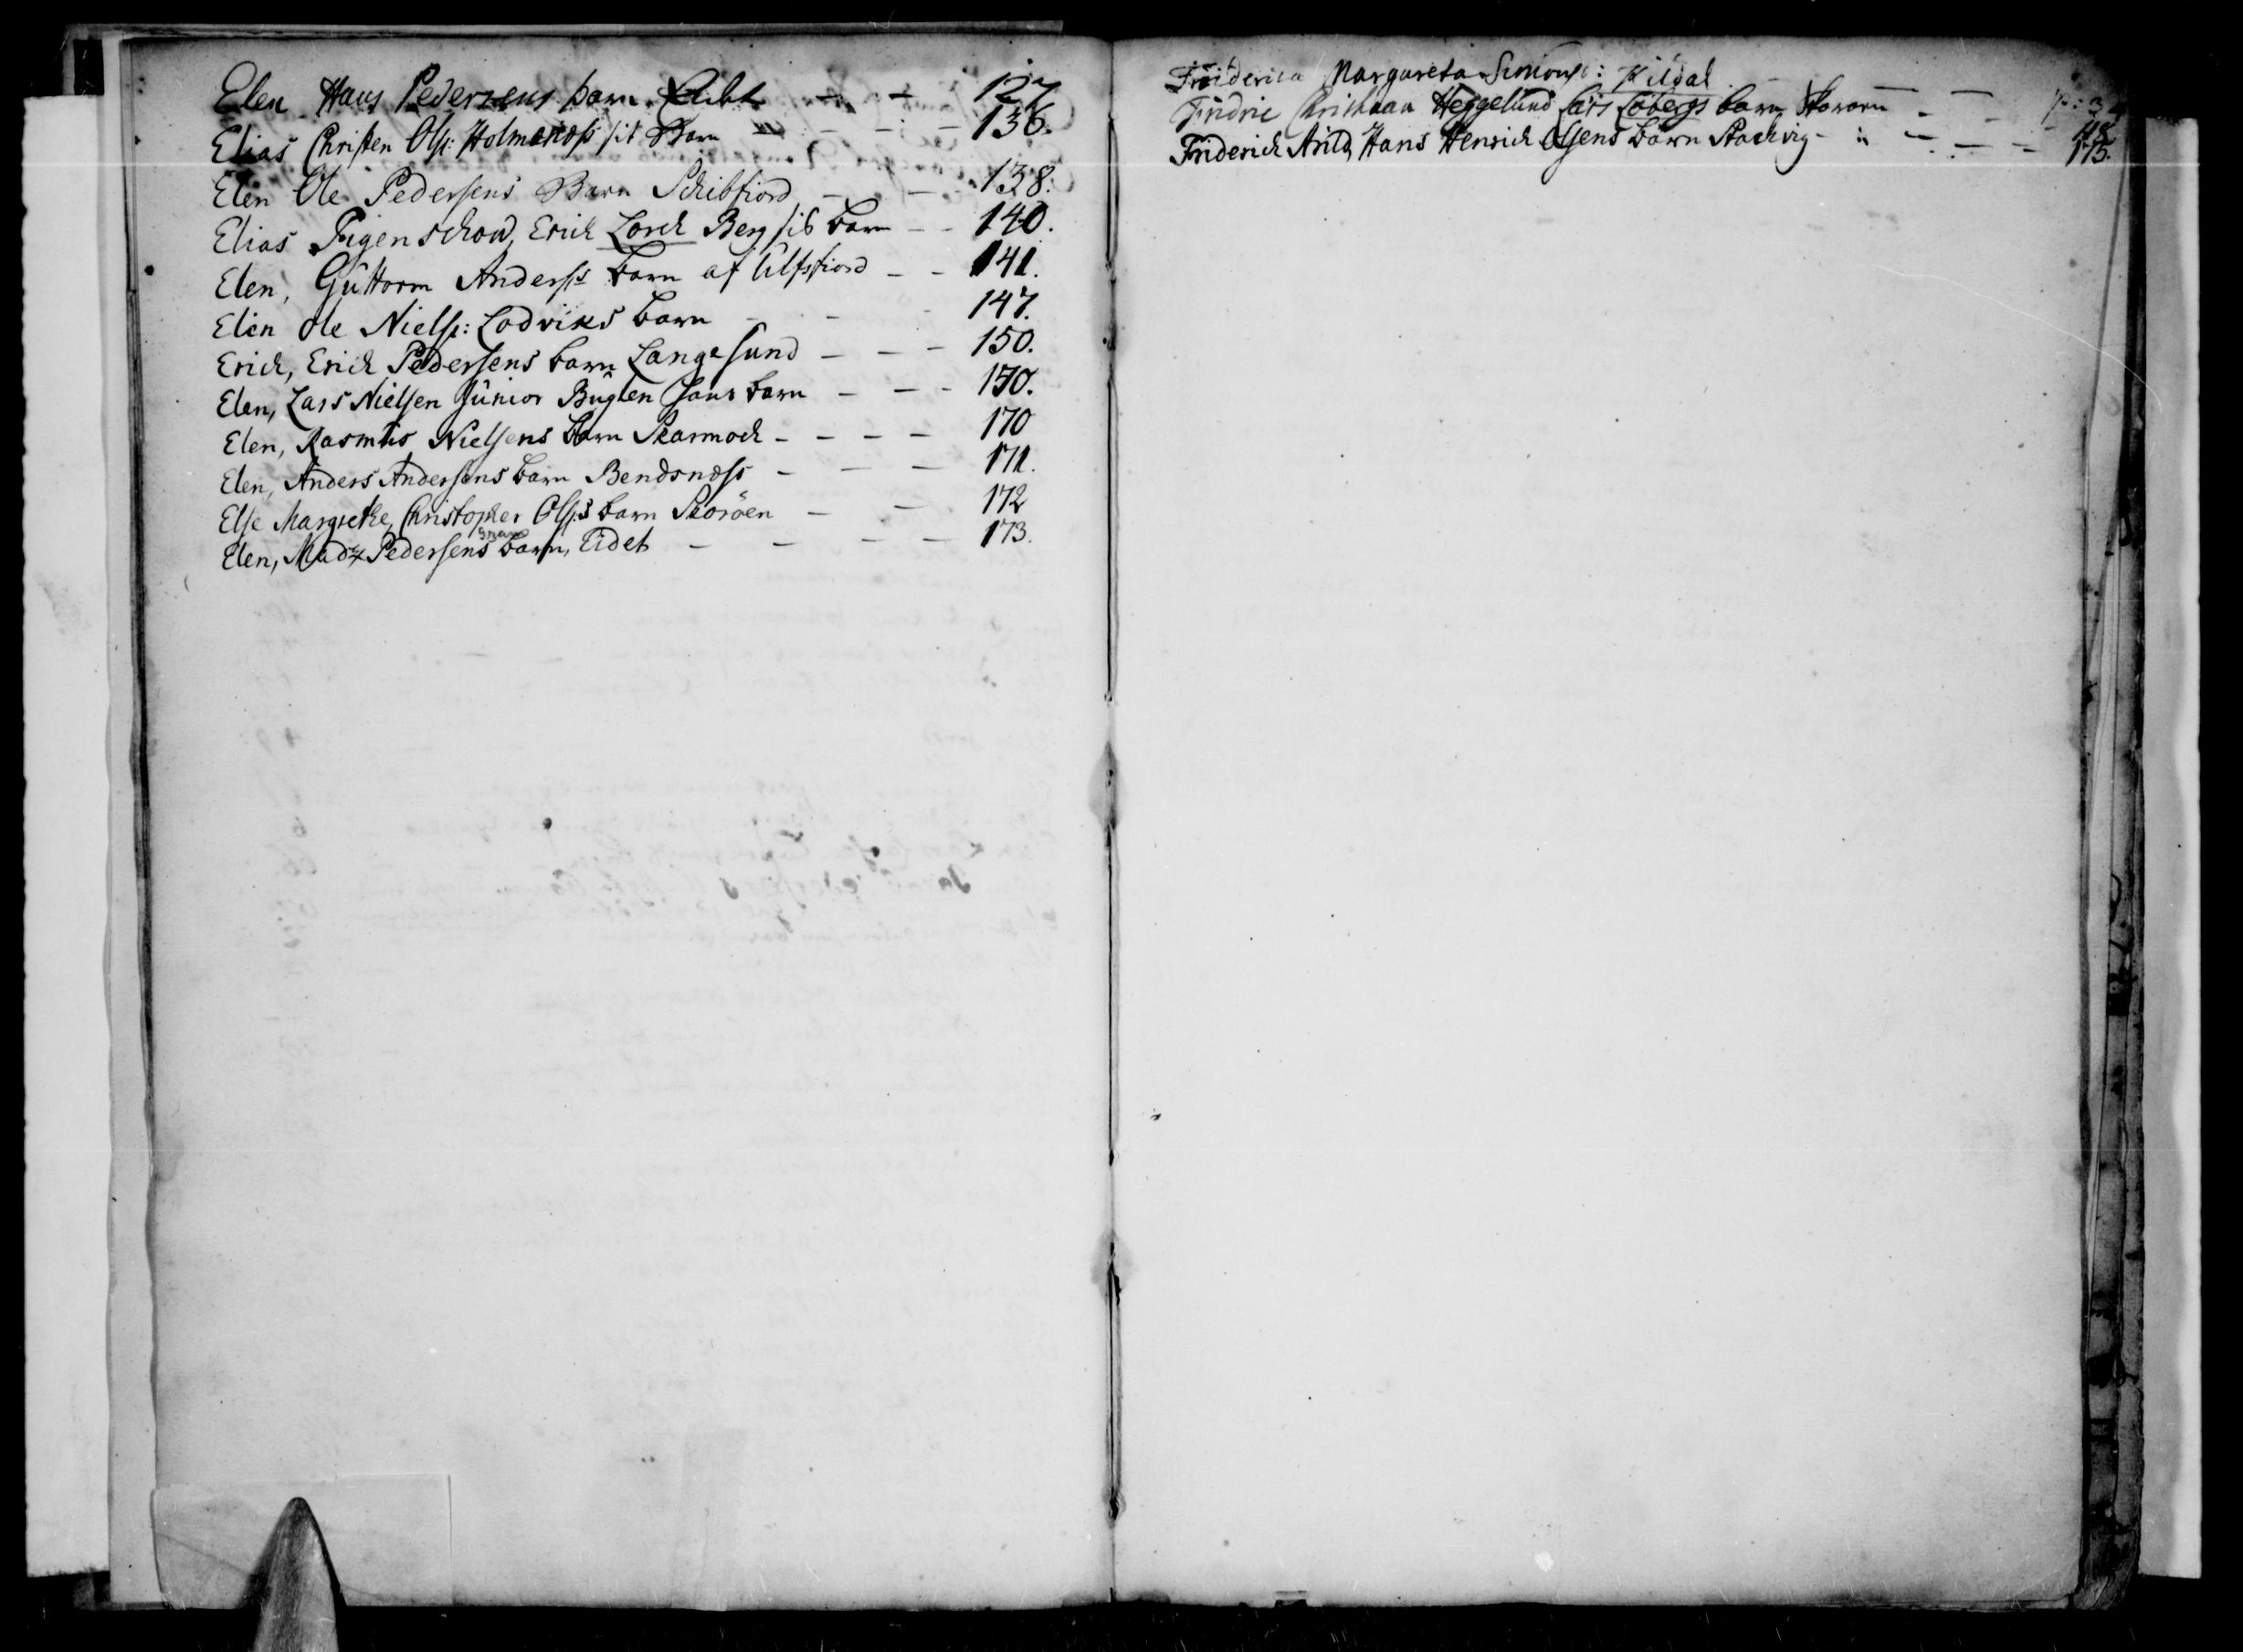 Elen Hans Pedersens barn - - 127
Elias Christen Ols: Holmenæss sit Barn - - - 136.
Elen Ole Pedersens Barn Schibfiord - - - 138.
Elias Figenschow, Erich Lorch Berg sit barn - - 140.
Elen, Guttorm Anderss barn af Ulfsfiord - - 141.
Elen Ole Niels: Lodviks barn - - - 147.
Erich, Erich Pedersens barn Langesund - - - 150.
Elen, Lars Nielsen Junior Bugten hans barn - - - 170.
Elen, Rasmus Nielsens barn Skarmoch - - - - 170
Elen, Anders Andersens barn Bendsnæss - - - 171.
Else Margrethe, Christopher Ols:s barn Skorøen - - 172
Elen, Madz Pedersens barn, Eidet - - - - 173.
Friderica Margareta Simons: Kildal - - p: 3
Fridric Christian Heggelund Lars Løbergs barn - - - 48
Friderich Arild, Hans Henrich Olsens barn Stachvig - - - - 175.